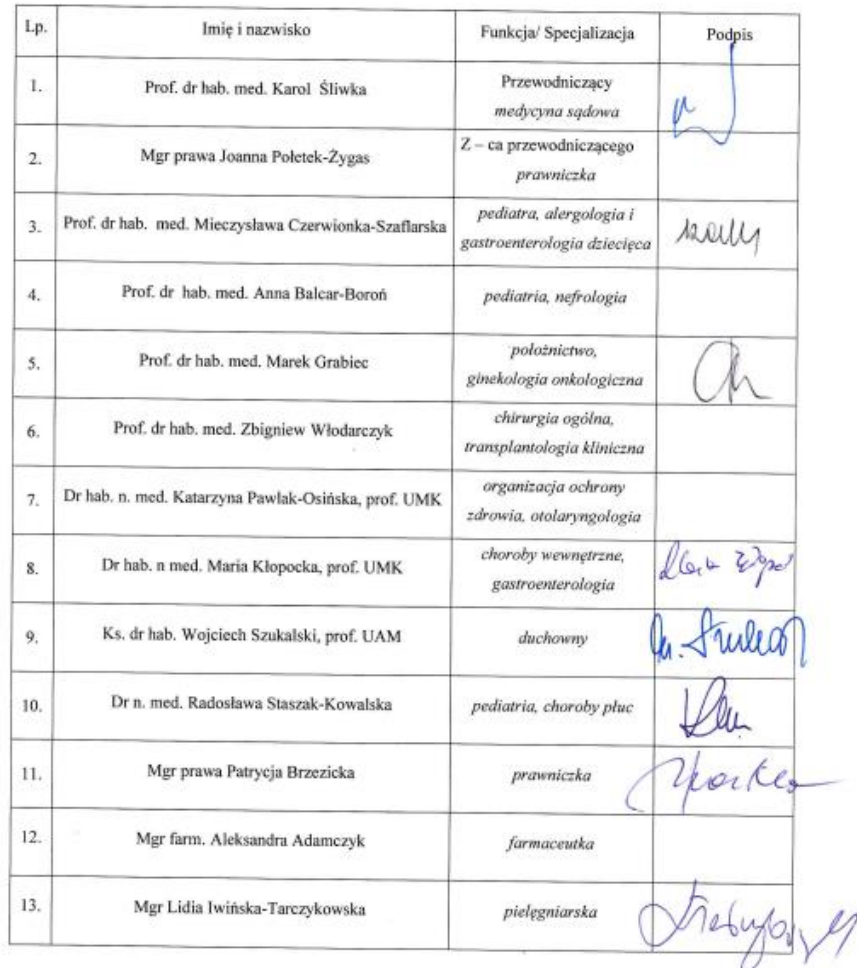 Lp. Imię i nazwisko Funkcja/ Specjalizacja Podpis
1. Prof. dr hab. med. Karol Śliwka Przewodniczący
medycyna sądowa
2. Mgr prawa Joanna Połetek-Żygas Z – ca przewodniczącego
prawniczka
3. Prof. dr hab. med. Mieczysława Czerwionka-Szaflarska pediatra, alergologia i
gastroenterologia dziecięca
4. Prof. dr hab. med. Anna Balcar-Boroń pediatria, nefrologia
5. Prof. dr hab. med. Marek Grabiec położnictwo,
ginekologia onkologiczna
6. Prof. dr hab. med. Zbigniew Włodarczyk chirurgia ogólna,
transplantologia kliniczna
7. Dr hab. n. med. Katarzyna Pawlak-Osińska, prof. UMK organizacja ochrony
zdrowia, otolaryngologia
8. Dr hab. n med. Maria Kłopocka, prof. UMK choroby wewnętrzne,
gastroenterologia
9. Ks. dr hab. Wojciech Szukalski, prof. UAM duchowny
10. Dr n. med. Radosława Staszak-Kowalska pediatria, choroby płuc
11. Mgr prawa Patrycja Brzezicka prawniczka
12. Mgr farm. Aleksandra Adamczyk farmaceutka
13. Mgr Lidia Iwińska-Tarczykowska pielęgniarska